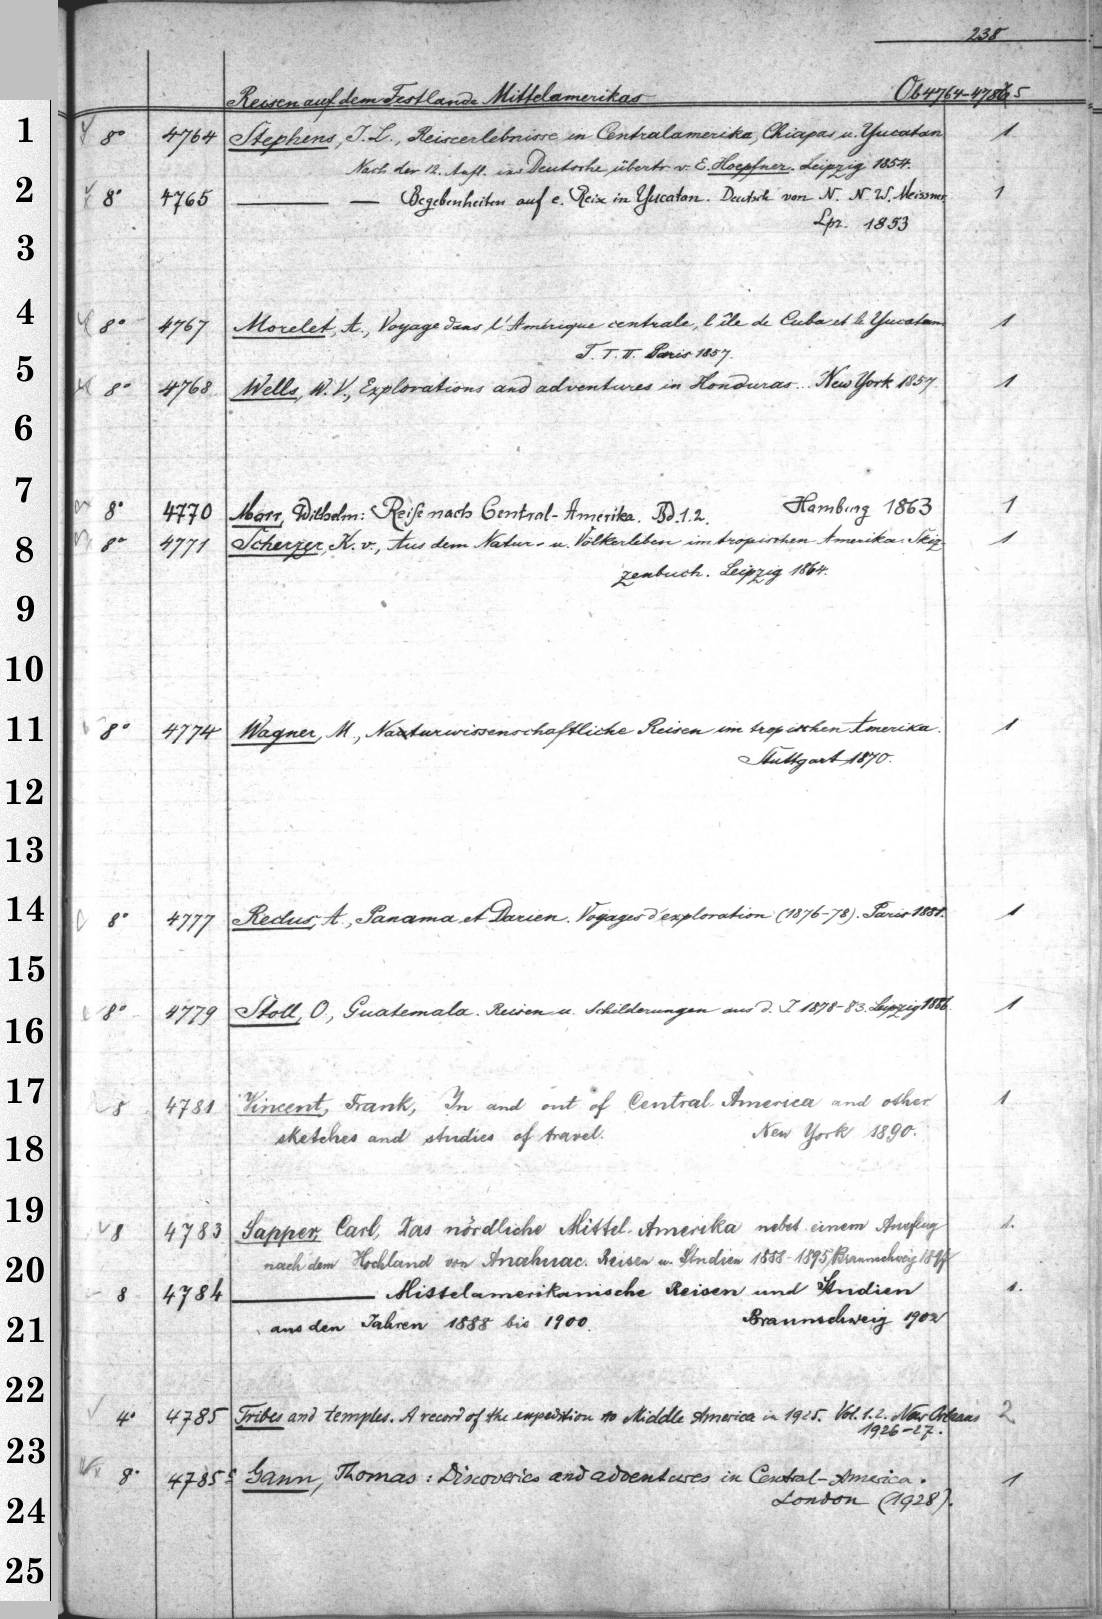 238
Reisen auf dem Festlande Mittelamerikas Ob 4764-4786,5
1 8° 4764 Stephens, J. L., Reiseerlebnisse in Centralamerika, Chiapas u. Yucatan 1
Nach der 12. Aufl. ins Deutsche übertr. v. E. Hoepfner. Leipzig 1854.
2 8° 4765 — — Begebenheiten auf e. Reise in Yucatan. Deutsch von N. N. W. Meissner. 1
Lpz. 1853
3
4 8° 4767 Morelet, A., Voyage dans l'Amérique centrale, l'île de Cuba et le Yucatan 1
T. I. II. Paris 1857.
5 8° 4768 Wells, W. V., Explorations and adventures in Honduras... New York 1857. 1
6
7 8° 4770 Marr, Wilhelm: Reise nach Central-Amerika. Bd. 1.2. Hamburg 1863 1
8 8° 4771 Scherzer, K. v., Aus dem Natur- u. Völkerleben im tropischen Amerika. Skiz- 1
zenbuch. Leipzig 1864.
9
10
11 8° 4774 Wagner, M., Naturwissenschaftliche Reisen im tropischen Amerika. 1
Stuttgart 1870.
12
13
14 8° 4777 Reclus, A., Panama et Darien. Voyages d'exploration (1876-78). Paris 1881. 1
15
16 8° 4779 Stoll, O., Guatemala. Reisen u. Schilderungen aus d. J. 1878-83. Leipzig 1886. 1
17 8 4781 Vincent, Frank, In and out of Central America and other 1
sketches and studies of travel. New York 1890.
18
19 8 4783 Sapper, Carl, Das nördliche Mittel-Amerika nebst einem Ausflug 1.
nach dem Hochland von Anahuac. Reisen u. Studien 1888-1895, Braunschweig 1897
20 8 4784 — Mittelamerikanische Reisen und Studien 1.
aus den Jahren 1888 bis 1900. Braunschweig 1902
21
22 4° 4785 Tribes and temples. A record of the expedition to Middle America in 1925. Vol. 1.2. New Orleans 2
1926-27.
23 8° 4785 5 Gann, Thomas: Discoveries and adventures in Central-America. 1
London (1928).
24
25